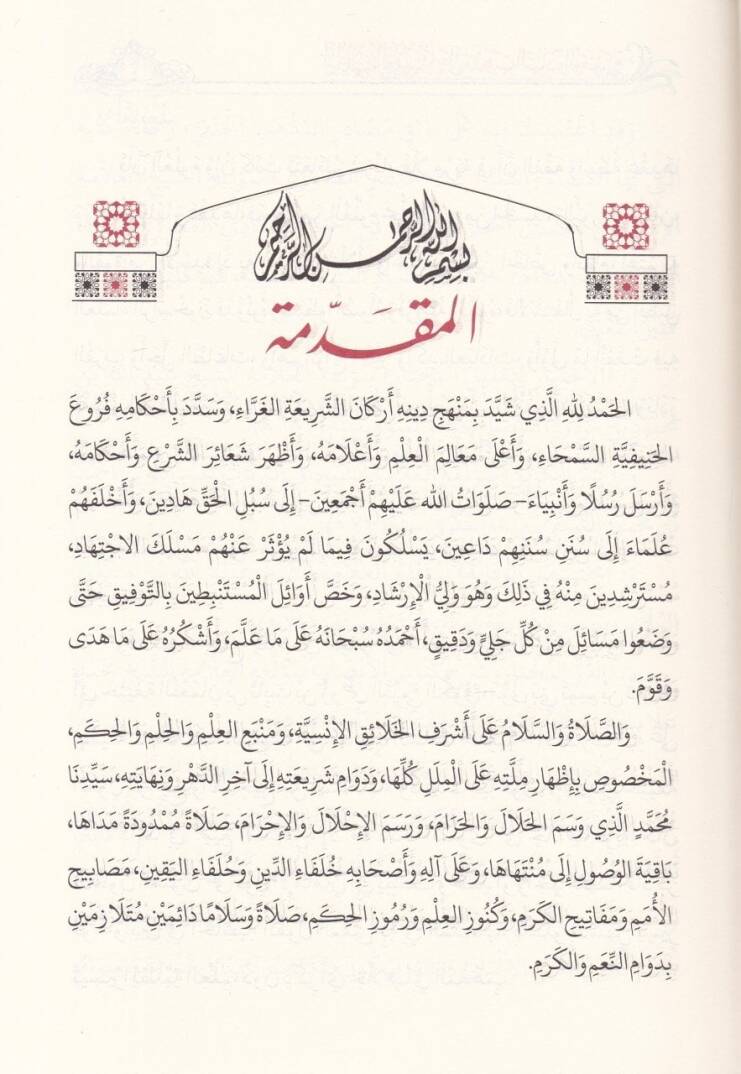 بسم الله الرحمن الرحيم
المقدّمة
الحَمْدُ لِلهِ الَّذِي شَيَّدَ بِمَنْهَجِ دِينِهِ أَرْكَانَ الشَّرِيعَةِ الغَرَّاءِ، وَسَدَّدَ بِأَحْكَامِهِ فُرُوعَ
الحَنِيفِيَّةِ السَّمْحَاءِ، وَأَعْلَى مَعَالِمَ العِلْمِ وَأَعْلَامَهُ، وَأَظْهَرَ شَعَائِرَ الشَّرْعِ وَأَحْكَامَهُ،
وَأَرْسَلَ رُسُلًا وَأَنْبِيَاءَ– صَلَوَاتُ الله عَلَيْهِمْ أَجْمَعِينَ– إِلَى سُبُلِ الْحَقِّ هَادِينَ، وَأَخْلَفَهُمْ
عُلَمَاءَ إِلَى سُنَنِ سُنَنِهِمْ دَاعِينَ، يَسْلُكُونَ فِيمَا لَمْ يُؤْثَرْ عَنْهُمْ مَسْلَكَ الاجْتِهَادِ،
مُسْتَرْشِدِينَ مِنْهُ فِي ذَلِكَ وَهُوَ وَلِيُّ الْإِرْشَادِ، وَخَصَّ أَوَائِلَ الْمُسْتَنْبِطِينَ بِالتَّوْفِيقِ حَتَّى
وَضَعُوا مَسَائِلَ مِنْ كُلِّ جَلِيٍّ وَدَقِيقٍ، أَحْمَدُهُ سُبْحَانَهُ عَلَى مَا عَلَّمَ، وَأَشْكُرُهُ عَلَى مَا هَدَى
وَقَوَّمَ.
وَالصَّلَاةُ وَالسَّلَامُ عَلَى أَشْرَفِ الخَلَائِقِ الإِنْسِيَّةِ، وَمَنْبَعِ العِلْمِ وَالحِلْمِ وَالحِكَمِ،
الْمَخْصُوصِ بِإِظْهَارِ مِلَّتِهِ عَلَى الْمِلَلِ كُلِّهَا، وَدَوَامِ شَرِيعَتِهِ إِلَى آخِرِ الدَّهْرِ وَنِهَايَتِهِ، سَيِّدِنَا
مُحَمَّدٍ الَّذِي وَسَمَ الحَلَالَ وَالحَرَامَ، وَرَسَمَ الإِحْلَالَ وَالإِحْرَامَ، صَلَاةً مَمْدُودَةً مَدَاهَا،
بَاقِيَةَ الوُصُولِ إِلَى مُنْتَهَاهَا، وَعَلَى آلِهِ وَأَصْحَابِهِ خُلَفَاءِ الدِّينِ وَحُلَفَاءِ اليَقِينِ، مَصَابِيحِ
الأُمَمِ وَمَفَاتِيحِ الكَرَمِ، وَكُنُوزِ العِلْمِ وَرُمُوزِ الحِكَمِ، صَلَاةً وَسَلَامًا دَائِمَيْنِ مُتَلَازِمَيْنِ
بِدَوَامِ النِّعَمِ وَالكَرَمِ.